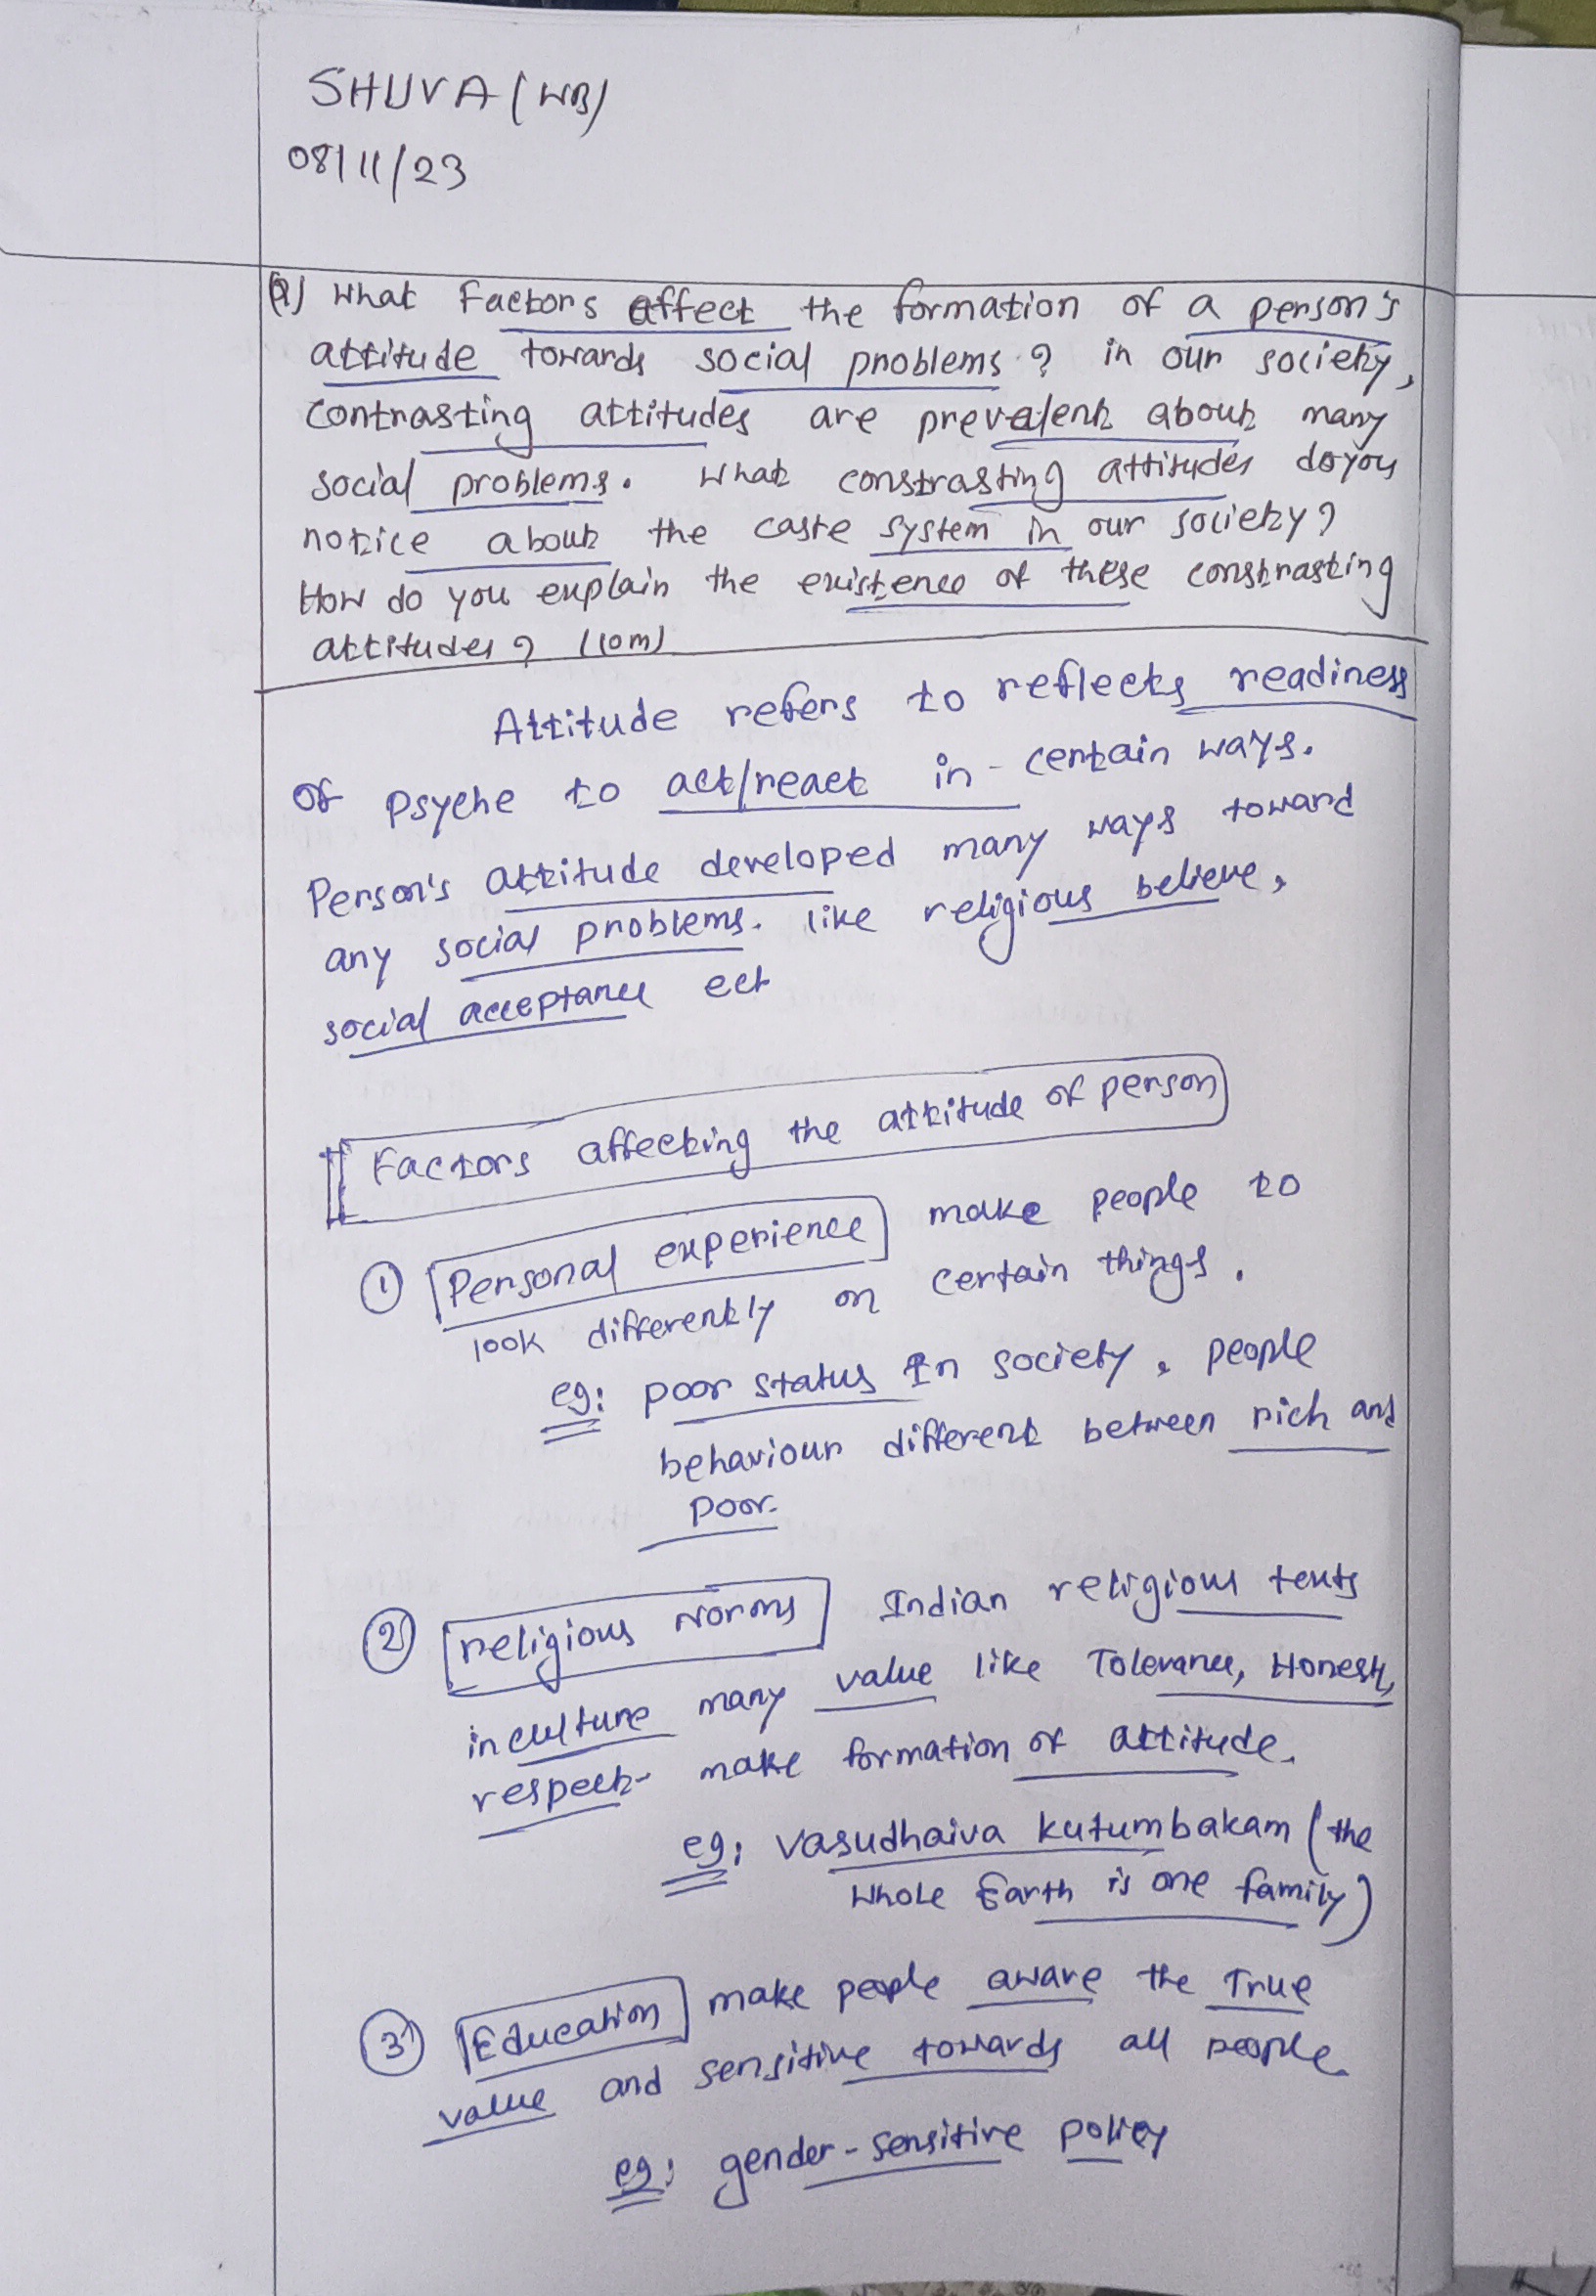 SHUVA (WB)
08/11/23
Q) What Factors affect the formation of a person's
attitude towards social problems? in our society,
contrasting attitudes are prevalent about many
social problems. What constrasting attitudes do you
notice about the caste system in our society?
How do you explain the existence of these constrasting
attitudes? (10m)
Attitude refers to reflects readiness
of psyche to act/react in certain ways.
Person's attitude developed many ways toward
any social problems. like religious believe,
social acceptance ect
Factors affecting the attitude of person
① Personal experience make people to
look differently on certain things.
eg: poor status In society, people
behaviour different between rich and
poor.
② religious Norms Indian religious texts
inculture many value like Tolerance, Honesty,
respect make formation of attitude.
eg: Vasudhaiva kutumbakam (the
whole Earth is one family)
③ Education make people aware the True
value and sensitive towards all people.
eg: gender-sensitive policy